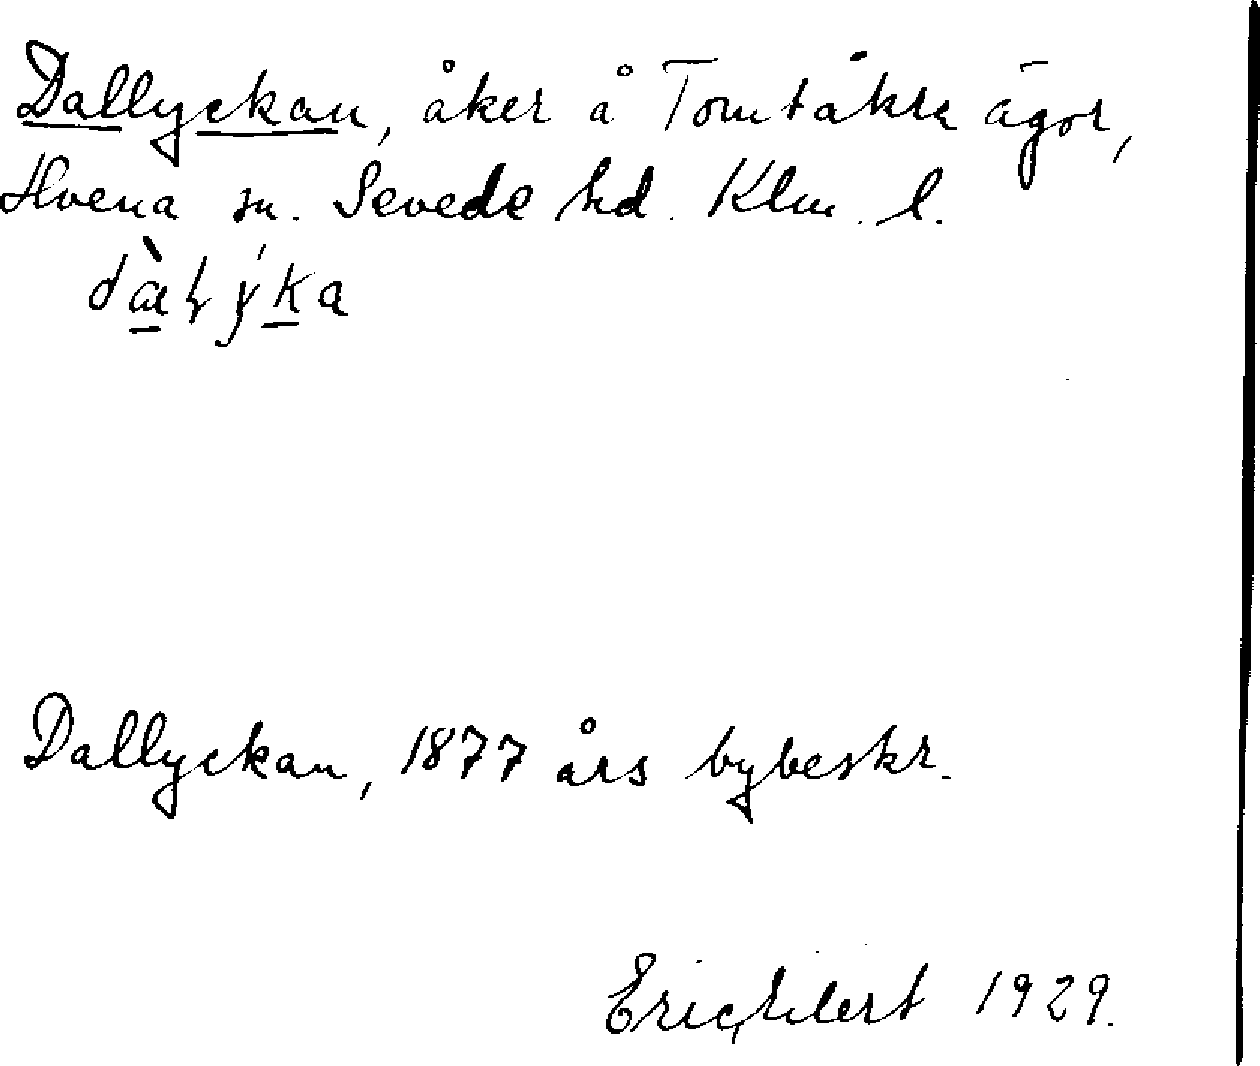 Dallyckan, åker å Tomtåkra ägor,
Hvena sn. Sevede hd. Klm. l.
Dallyckan, 1877 års bybeskr.
Eric Elert 1929.